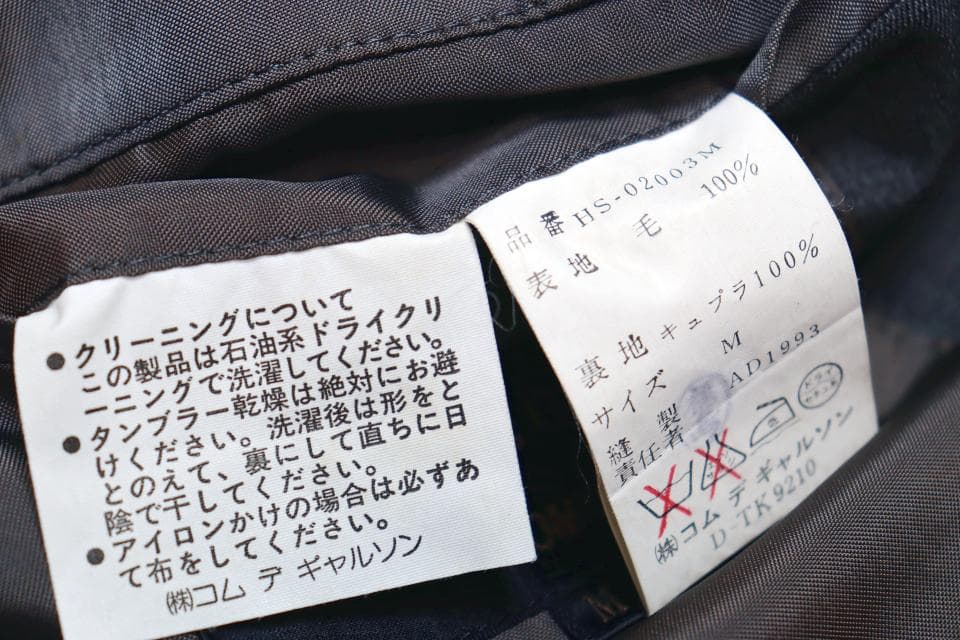 クリーニングについて
● この製品は石油系ドライクリ
ーニングで洗濯してください。
● タンブラー乾燥は絶対にお避
けください。洗濯後は形をと
とのえて、裏にして直ちに日
陰で干してください。
● アイロンかけの場合は必ずあ
て布をしてください。
㈱コム デ ギャルソン
品番 HS-02003M
表地 毛 100%
裏地 キュプラ100%
サイズ M
縫製
責任者 AD1993
ドライ
㈱コム デ ギャルソン
D-TK9210
M